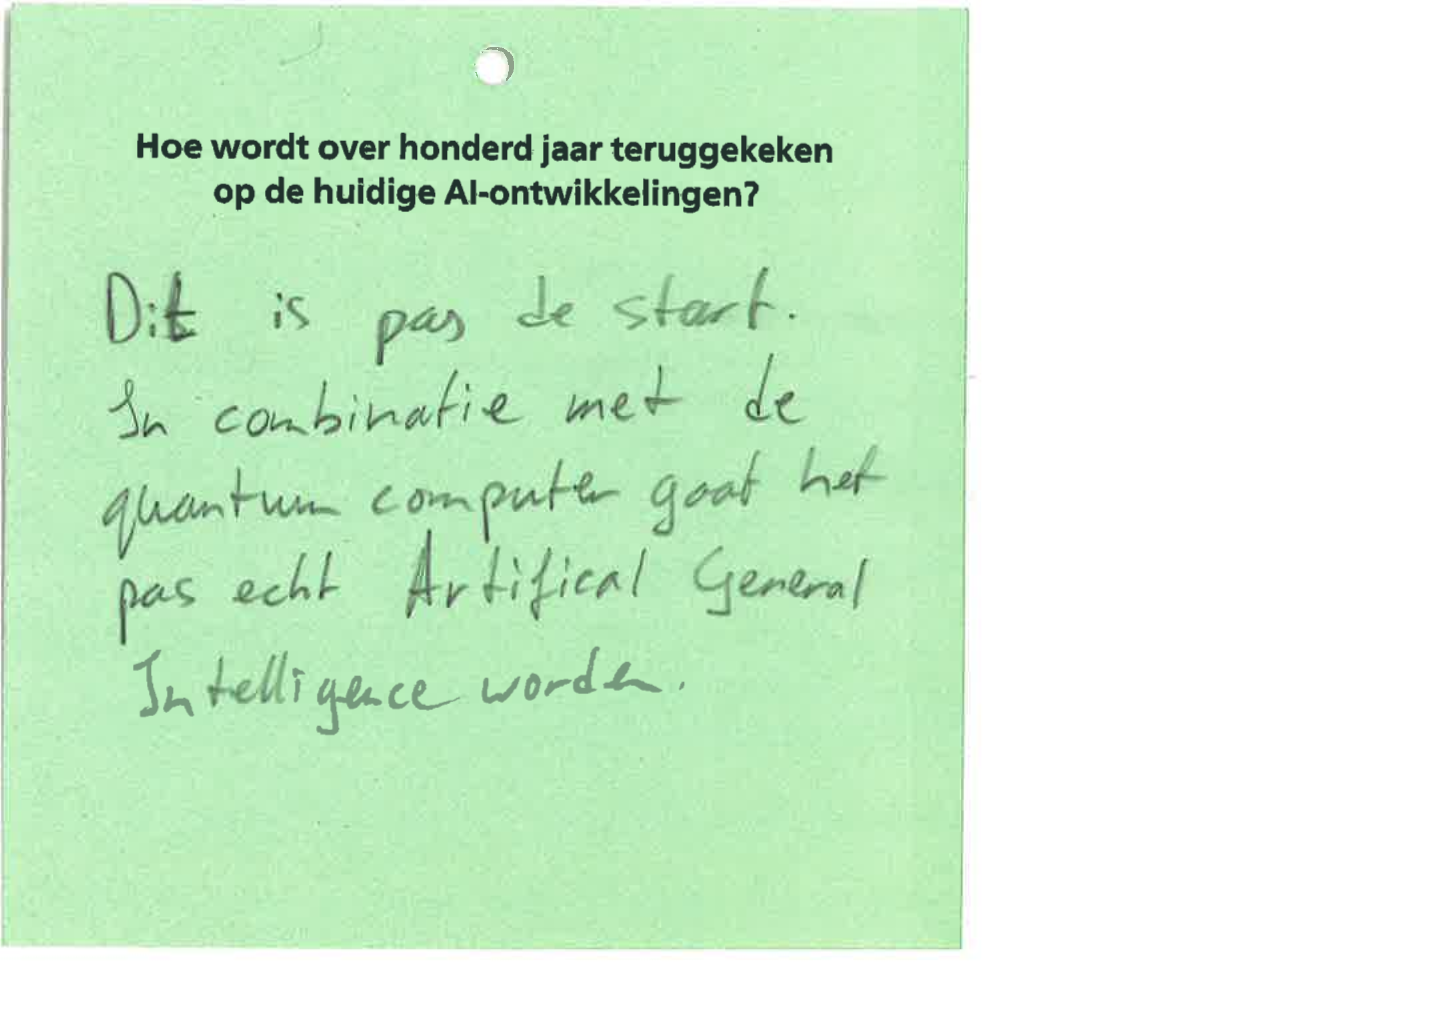 Hoe wordt over honderd jaar teruggekeken
op de huidige AI-ontwikkelingen?
Dit is pas de start.
In combinatie met de
quantum computer gaat het
pas echt Artifical General
Intelligence worden.